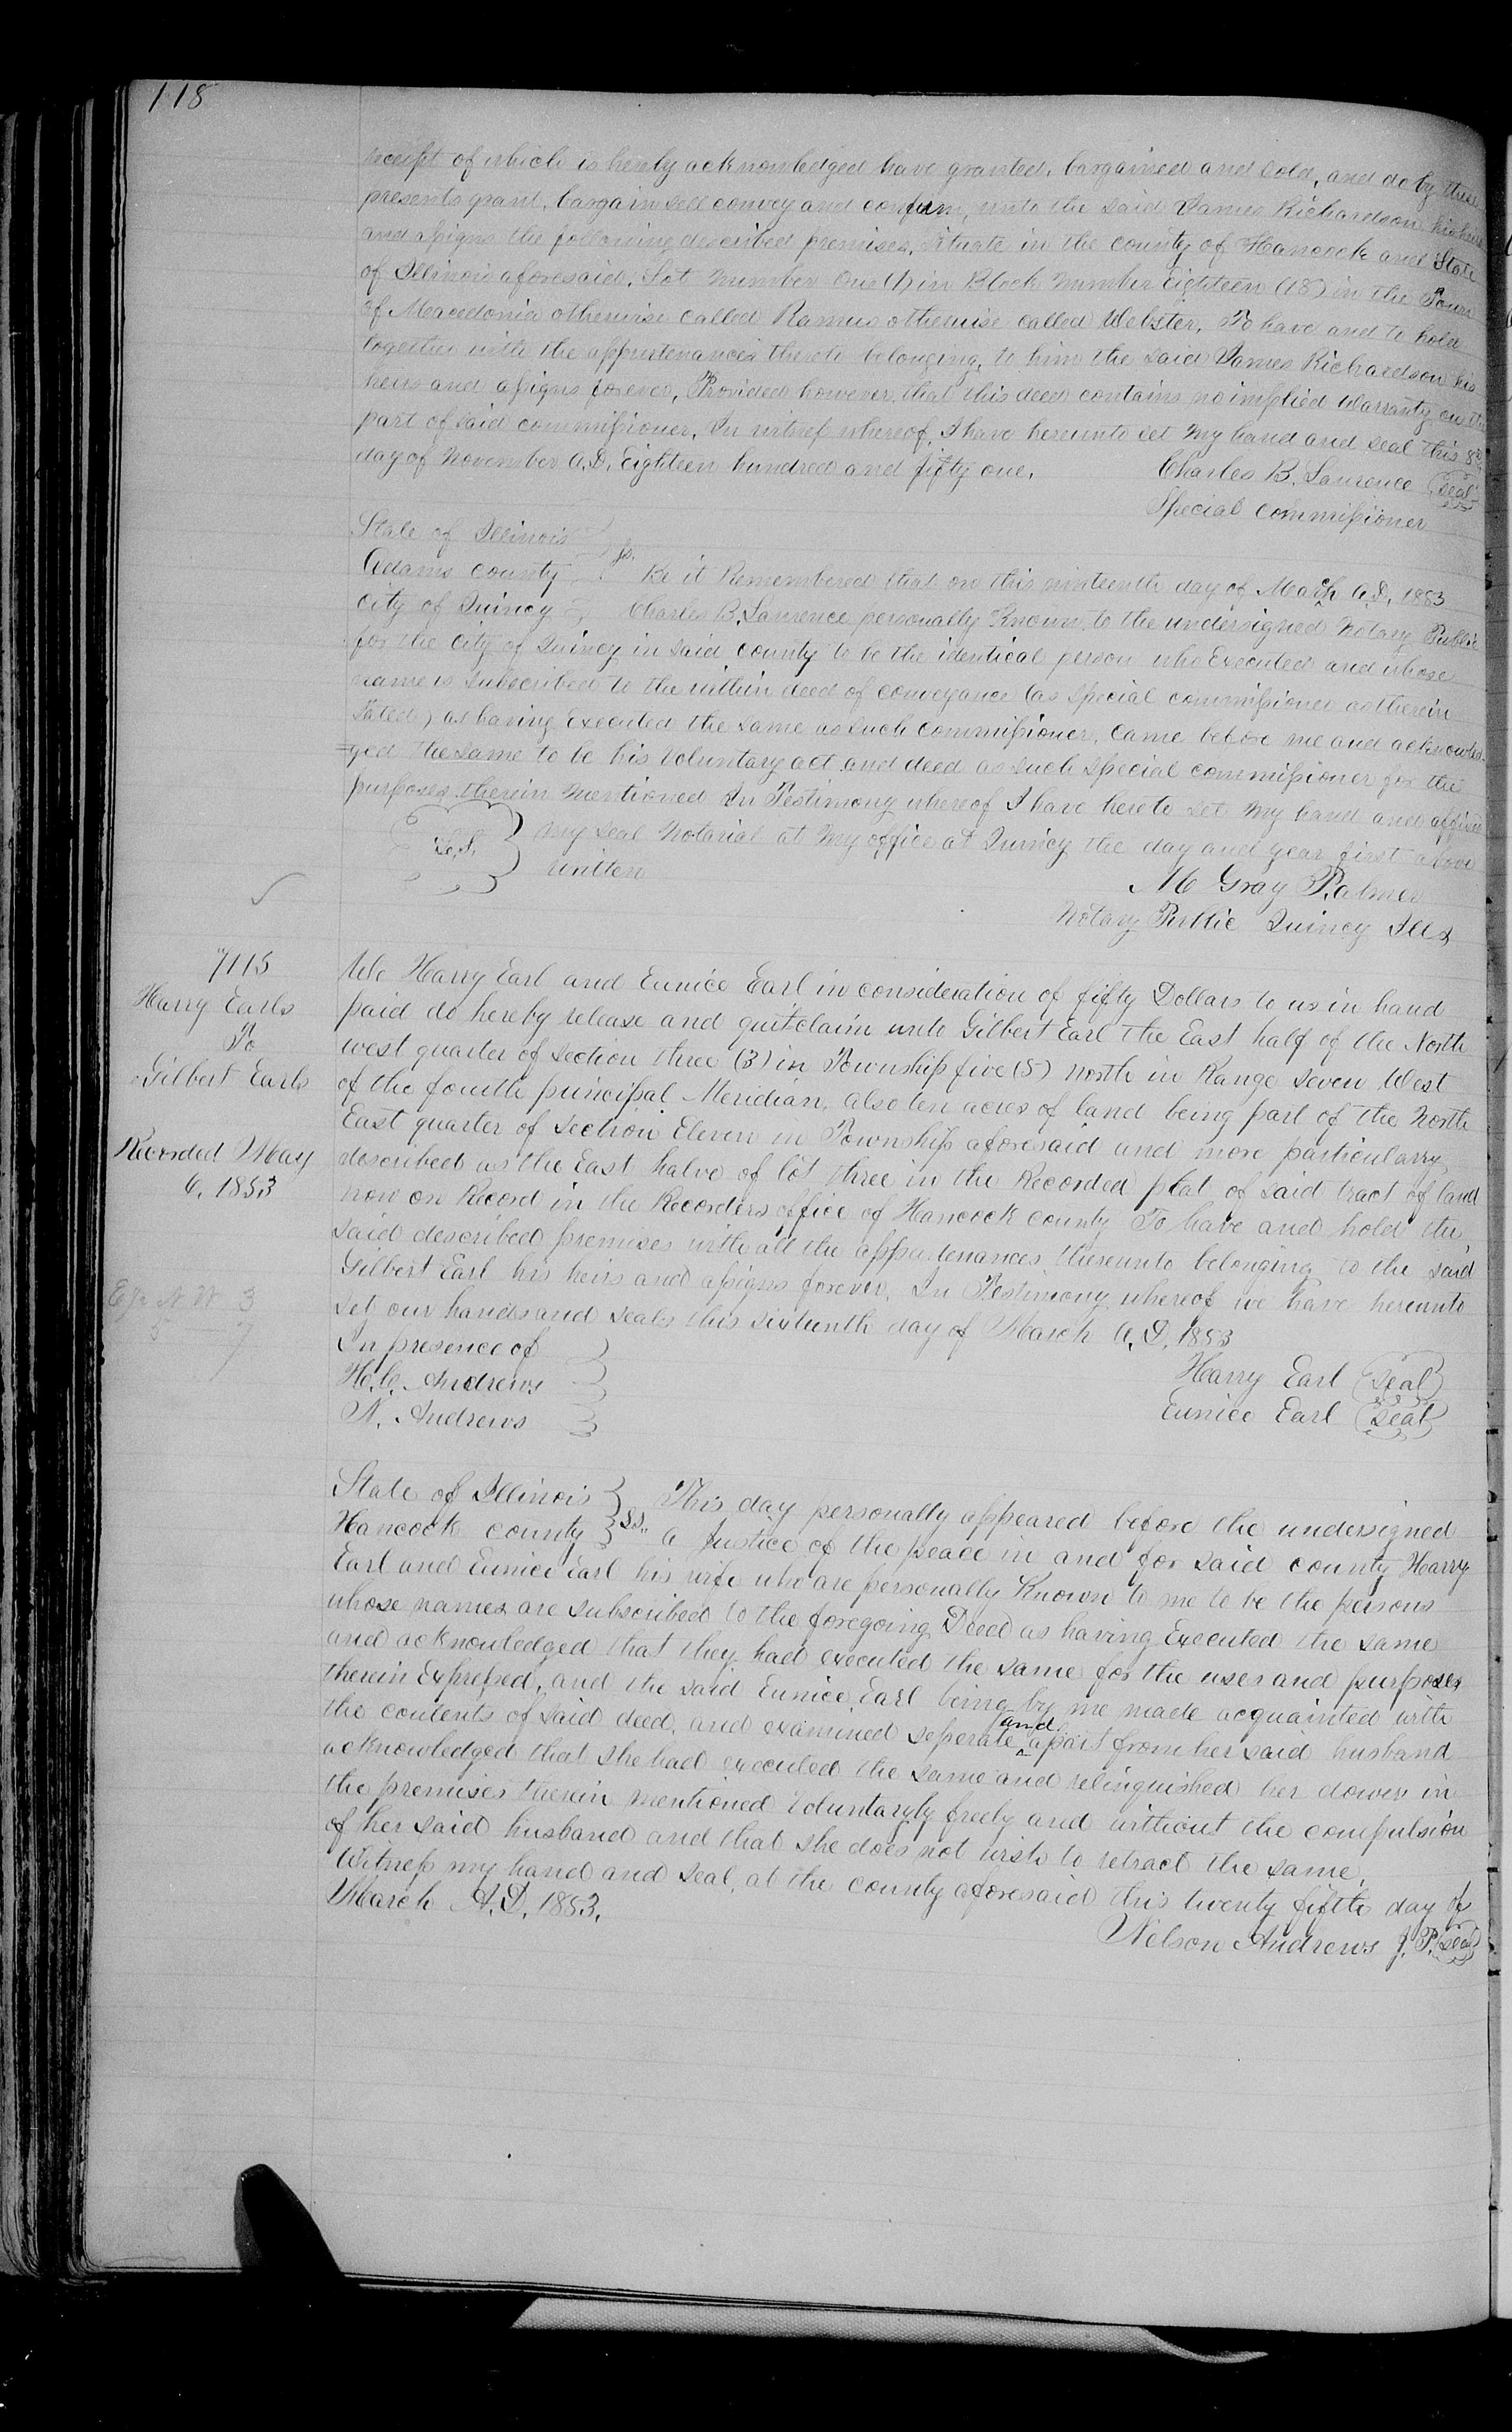 118
receipt of which is hereby acknowledged have granted, bargained and sold, and do by these
presents grant, bargain sell convey and confirm, unto the said James Richardson his heirs
and assigns the following described premises, situate in the county of Hancock and State
of Illinois aforesaid, Lot number One (1) in Block number Eighteen (18) in the Town
of Macedonia otherwise called Ramus otherwise called Webster, To have and to hold
together with the appurtenances thereto belonging, to him the said James Richardson his
heirs and assigns forever, Provided however, that this deed contains no implied Warranty on the
part of said commissioner, In witness whereof, I have hereunto set my hand and seal this 8th
day of November A.D. Eighteen hundred and fifty one.
Charles B. Laurence (seal)
Special Commissioner
State of Illinois
Adams County ss. Be it Remembered that on this ninteenth day of March A.D. 1853
City of Quincy Charles B. Laurence personally Known to the undersigned Notary Public
for the City of Quincy in said county to be the identical person who Executed and whose
name is subscribed to the within deed of conveyance (as special commissioner as therein
stated) as having Executed the same as such Commissioner, came before me and acknowled
=ged the same to be his voluntary act and deed as such special commissioner for the
purposes therein mentioned In Testimony whereof I have hereto set my hand and affixed
my seal Notarial at my office at Quincy the day and year first above
written
M Gray Palmer
Notary Public Quincy Ills
7115
Harry Earls
To
Gilbert Earls
Recorded May
6, 1853
We Harry Earl and Eunice Earl in consideration of fifty Dollars to us in hand
paid do hereby release and quitclaim unto Gilbert Earl the East half of the North
west quarter of section three (3) in Township five (5) north in Range seven West
of the fourth principal Meridian, also ten acres of land being part of the North
East quarter of Section Eleven in Township aforesaid and more particularry
described as the East halve of lot three in the Recorded plat of said tract of land
now on Record in the Recorders office of Hancock county To have and hold the
said described premises with all the appurtenances thereunto belonging to the said
Gilbert Earl his heirs and assigns forever, In Testimony whereof we have hereunto
set our hands and seals this sixteenth day of March A.D. 1853
E 1/2 N W 3
5 7
In presence of
H.C. Andrews
N. Andrews
Harry Earl (Seal)
Eunice Earl (Seal)
State of Illinois } This day personally appeared before the undersigned
Hancock county } SS. a Justice of the peace in and for said county Harry
Earl and Eunice Earl his wife who are personally Known to me to be the persons
whose names are subscribed to the foregoing Deed as having Executed the same
and acknowledged that they had executed the same for the uses and purposes
therein Expressed, and the said Eunice Earl being by me made acquainted with
the contents of said deed, and examined seperate and apart from her said husband
acknowledged that she had executed the same and relinquished her dower in
the premises therein mentioned Voluntaryly freely and without the compulsion
of her said husband and that she does not wish to retract the same,
Witness my hand and seal, at the county aforesaid this twenty fifth day of
March A.D. 1853.
Nelson Andrews J.P. (Seal)